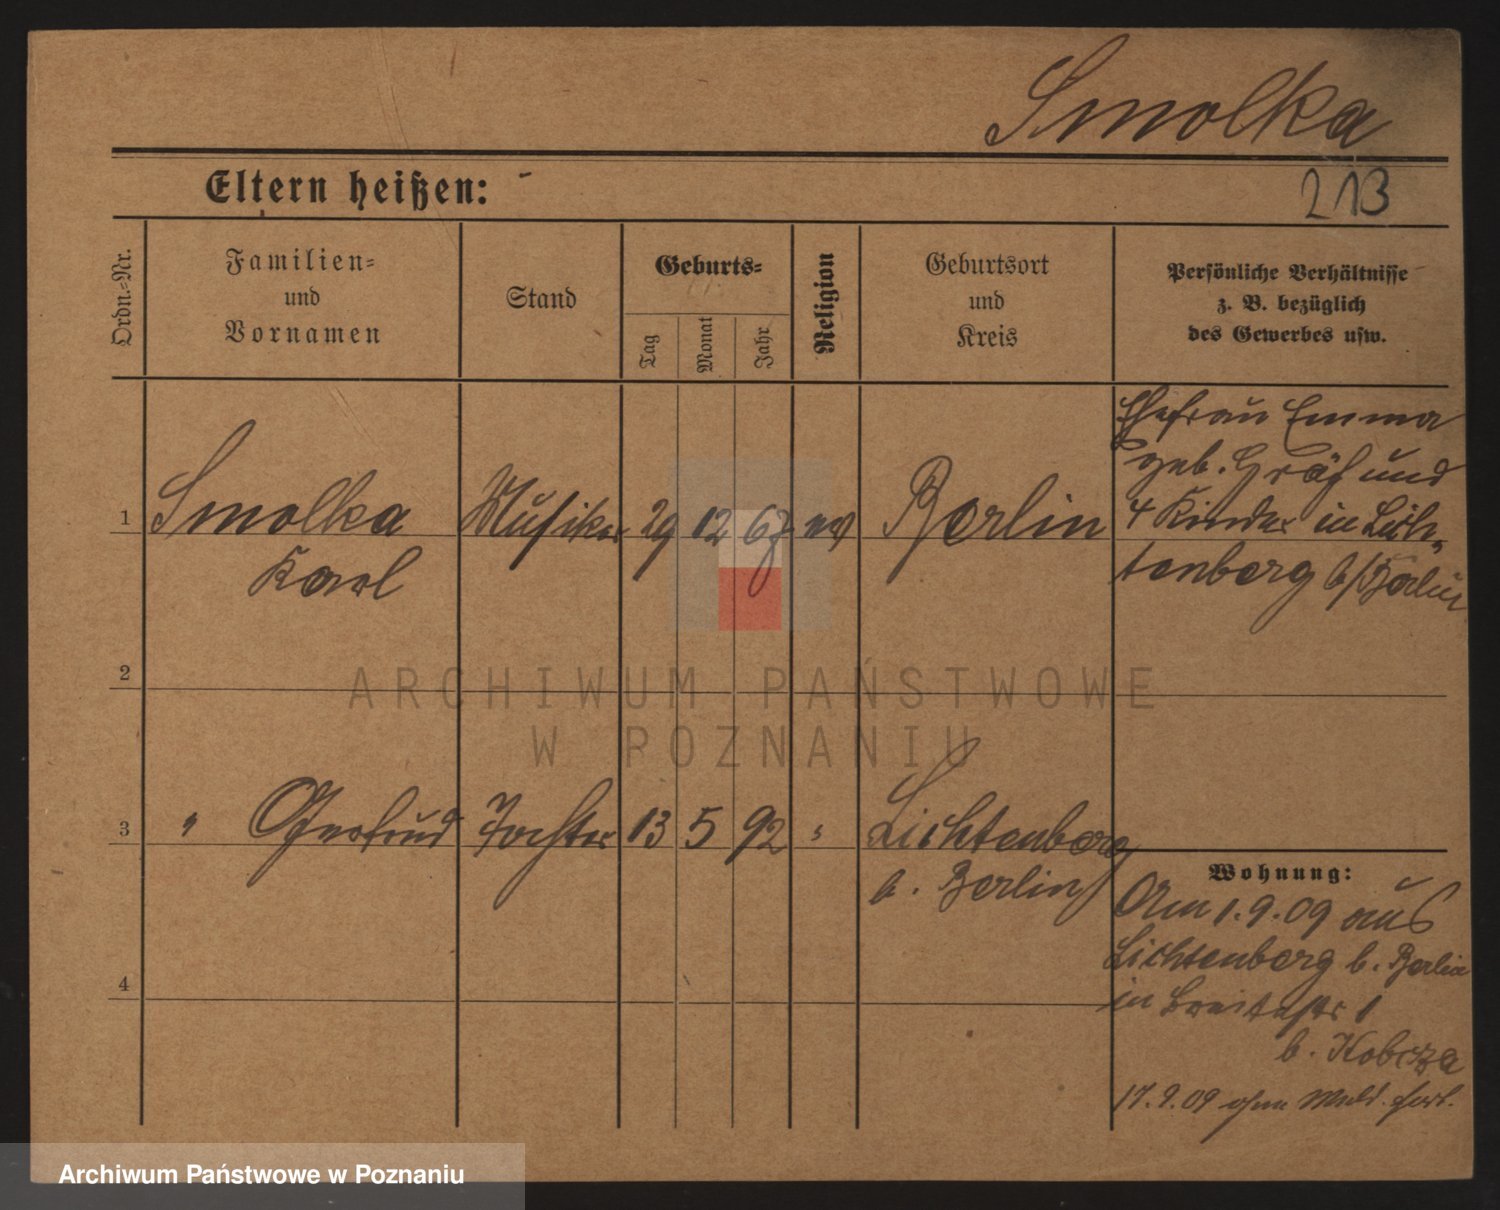 Smolka
213
Eltern heißen:
Ordn.-Nr.
Familien-
und
Vornamen
Stand
Geburts-
Tag
Monat
Jahr
Religion
Geburtsort
und
Kreis
Persönliche Verhältnisse
z. B. bezüglich
des Gewerbes usw.
1 Smolka Musiker 29 12 67 ev Berlin
Karl
Ehefrau Emma
geb. Gräf und
4 Kinder in Lich-
tenberg b/Berlin
2
3 " Gertrud Tochter 13 5 92 " Lichtenberg
b. Berlin
4
Wohnung:
Am 1.9.09 aus
Lichtenberg b. Berlin
in Breitestr 1
b. Kobcza
17.9.09 ohne Meld. fort.
ARCHIWUM PAŃSTWOWE
W POZNANIU
Archiwum Państwowe w Poznaniu